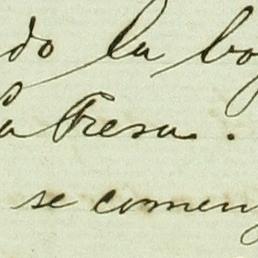 do la bo
la Fresa.
se comen